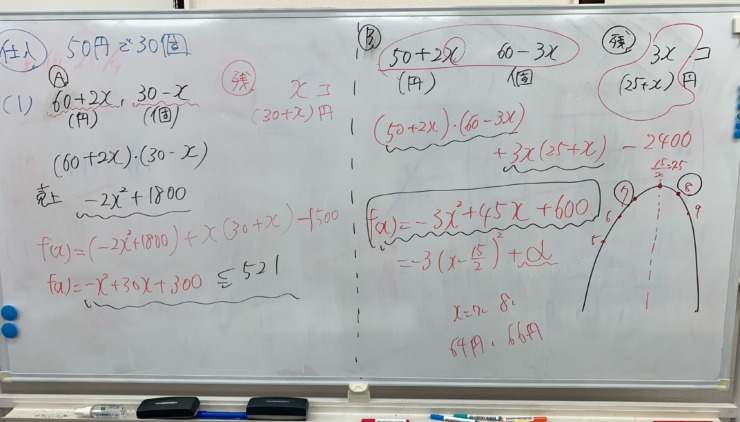 仕入 50円で30個
(1) Ⓐ
60+2x, 30-x
(円) (個)
残 xコ
(30+x)円
(60+2x)・(30-x)
売上 -2x²+1800
f(x)=(-2x²+1800)+x(30+x)-1500
f(x)=-x²+30x+300 ≦521
Ⓑ 50+2x 60-3x
(円) 個
残 3xコ
(25+x)円
(50+2x)・(60-3x)
+3x(25+x)-2400
f(x)=-3x²+45x+600
=-3(x-15/2)²+α
x=7, 8,
64円, 66円
15/2 7.5
5 6 7 8 9